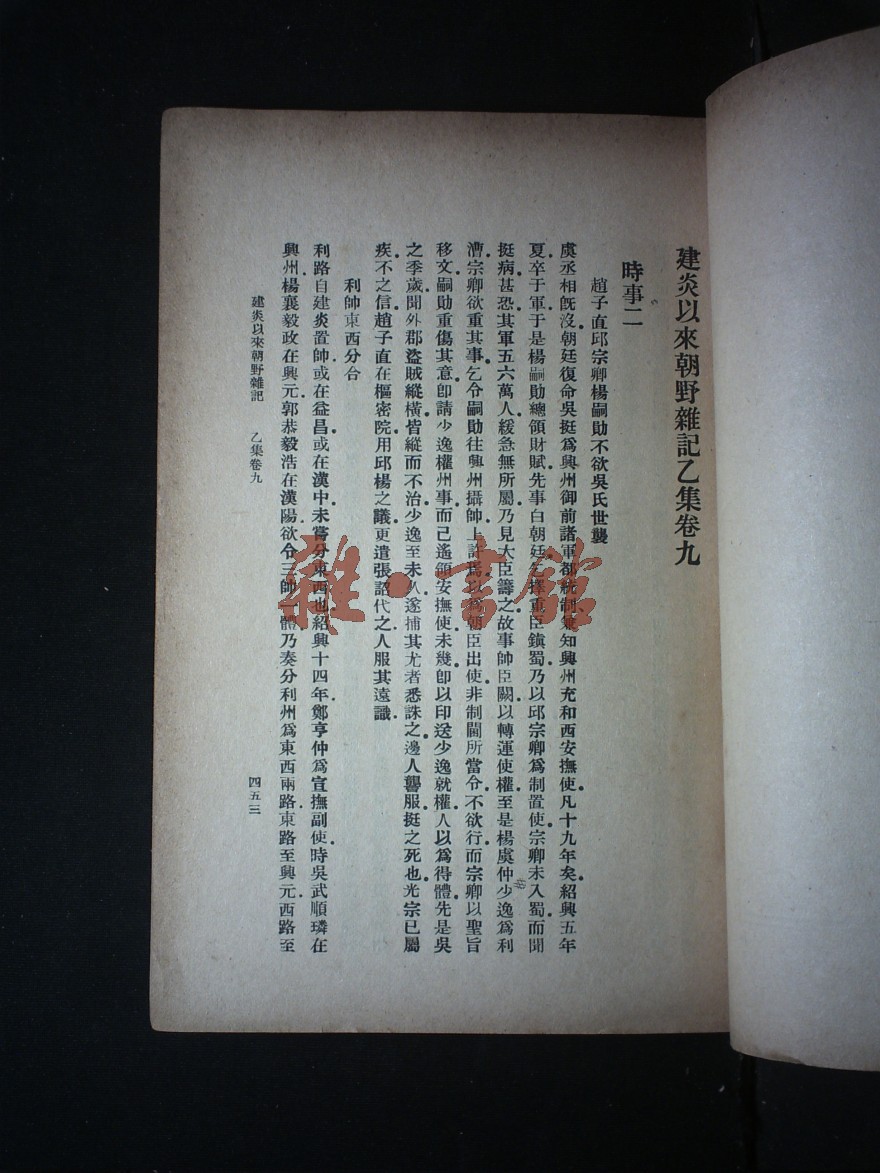 建炎以來朝野雜記乙集卷九
時事二
趙子直邱宗卿楊嗣勛不欲吳氏世襲
虞丞相旣沒、朝廷復命吳挺爲興州御前諸軍都統制、兼知興州充和西安撫使。凡十九年矣。紹興五年
夏卒于軍于是楊嗣勛總領財賦先事白朝廷乞擇重臣鎭蜀乃以邱宗卿爲制置使宗卿未入蜀而聞
挺病甚恐其軍五六萬人緩急無所屬乃見大臣籌之故事帥臣闕以轉運使權至是楊虞仲少逸爲利
漕宗卿欲重其事乞令嗣勛往興州攝帥上許焉以爲朝臣出使非制閫所當令不欲行而宗卿以聖旨
移文嗣勛重傷其意卽請少逸權州事而已遙領安撫使未幾卽以印送少逸就權人以爲得體先是吳
之季歲聞外郡盜賊縱橫皆縱而不治少逸至未久遂捕其尤者悉誅之邊人讋服挺之死也光宗已屬
疾不之信趙子直在樞密院用邱楊之議更遣張詔代之人服其遠識
利帥東西分合
利路自建炎置帥或在益昌或在漢中未嘗分東西也紹興十四年鄭亨仲爲宣撫副使時吳武順璘在
興州楊襄毅政在興元郭恭毅浩在漢陽欲令三帥一體乃奏分利州爲東西兩路東路至興元西路至
建炎以來朝野雜記 乙集卷九
四五三
雜·書館